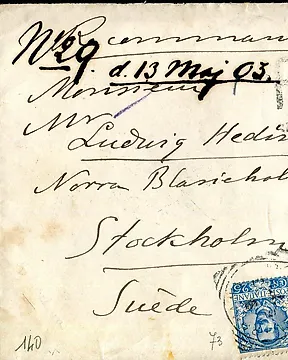 No 29 Recomman
d. 13 Maj 03.
Monsieur
Mr
Ludwig Hedin
Norra Blasiehol
Stockholm
Suède
140
73